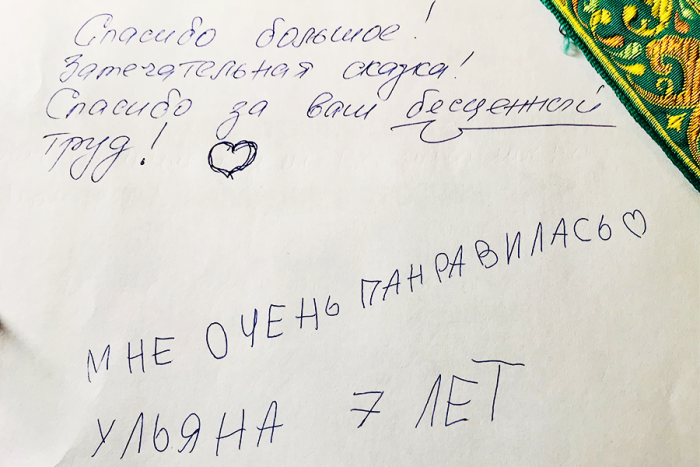 Спасибо большое!
Замечательная сказка!
Спасибо за ваш бесценный
труд! ♡
МНЕ ОЧЕНЬ ПАНРАВИЛАСЬ ♡
УЛЬЯНА 7 ЛЕТ